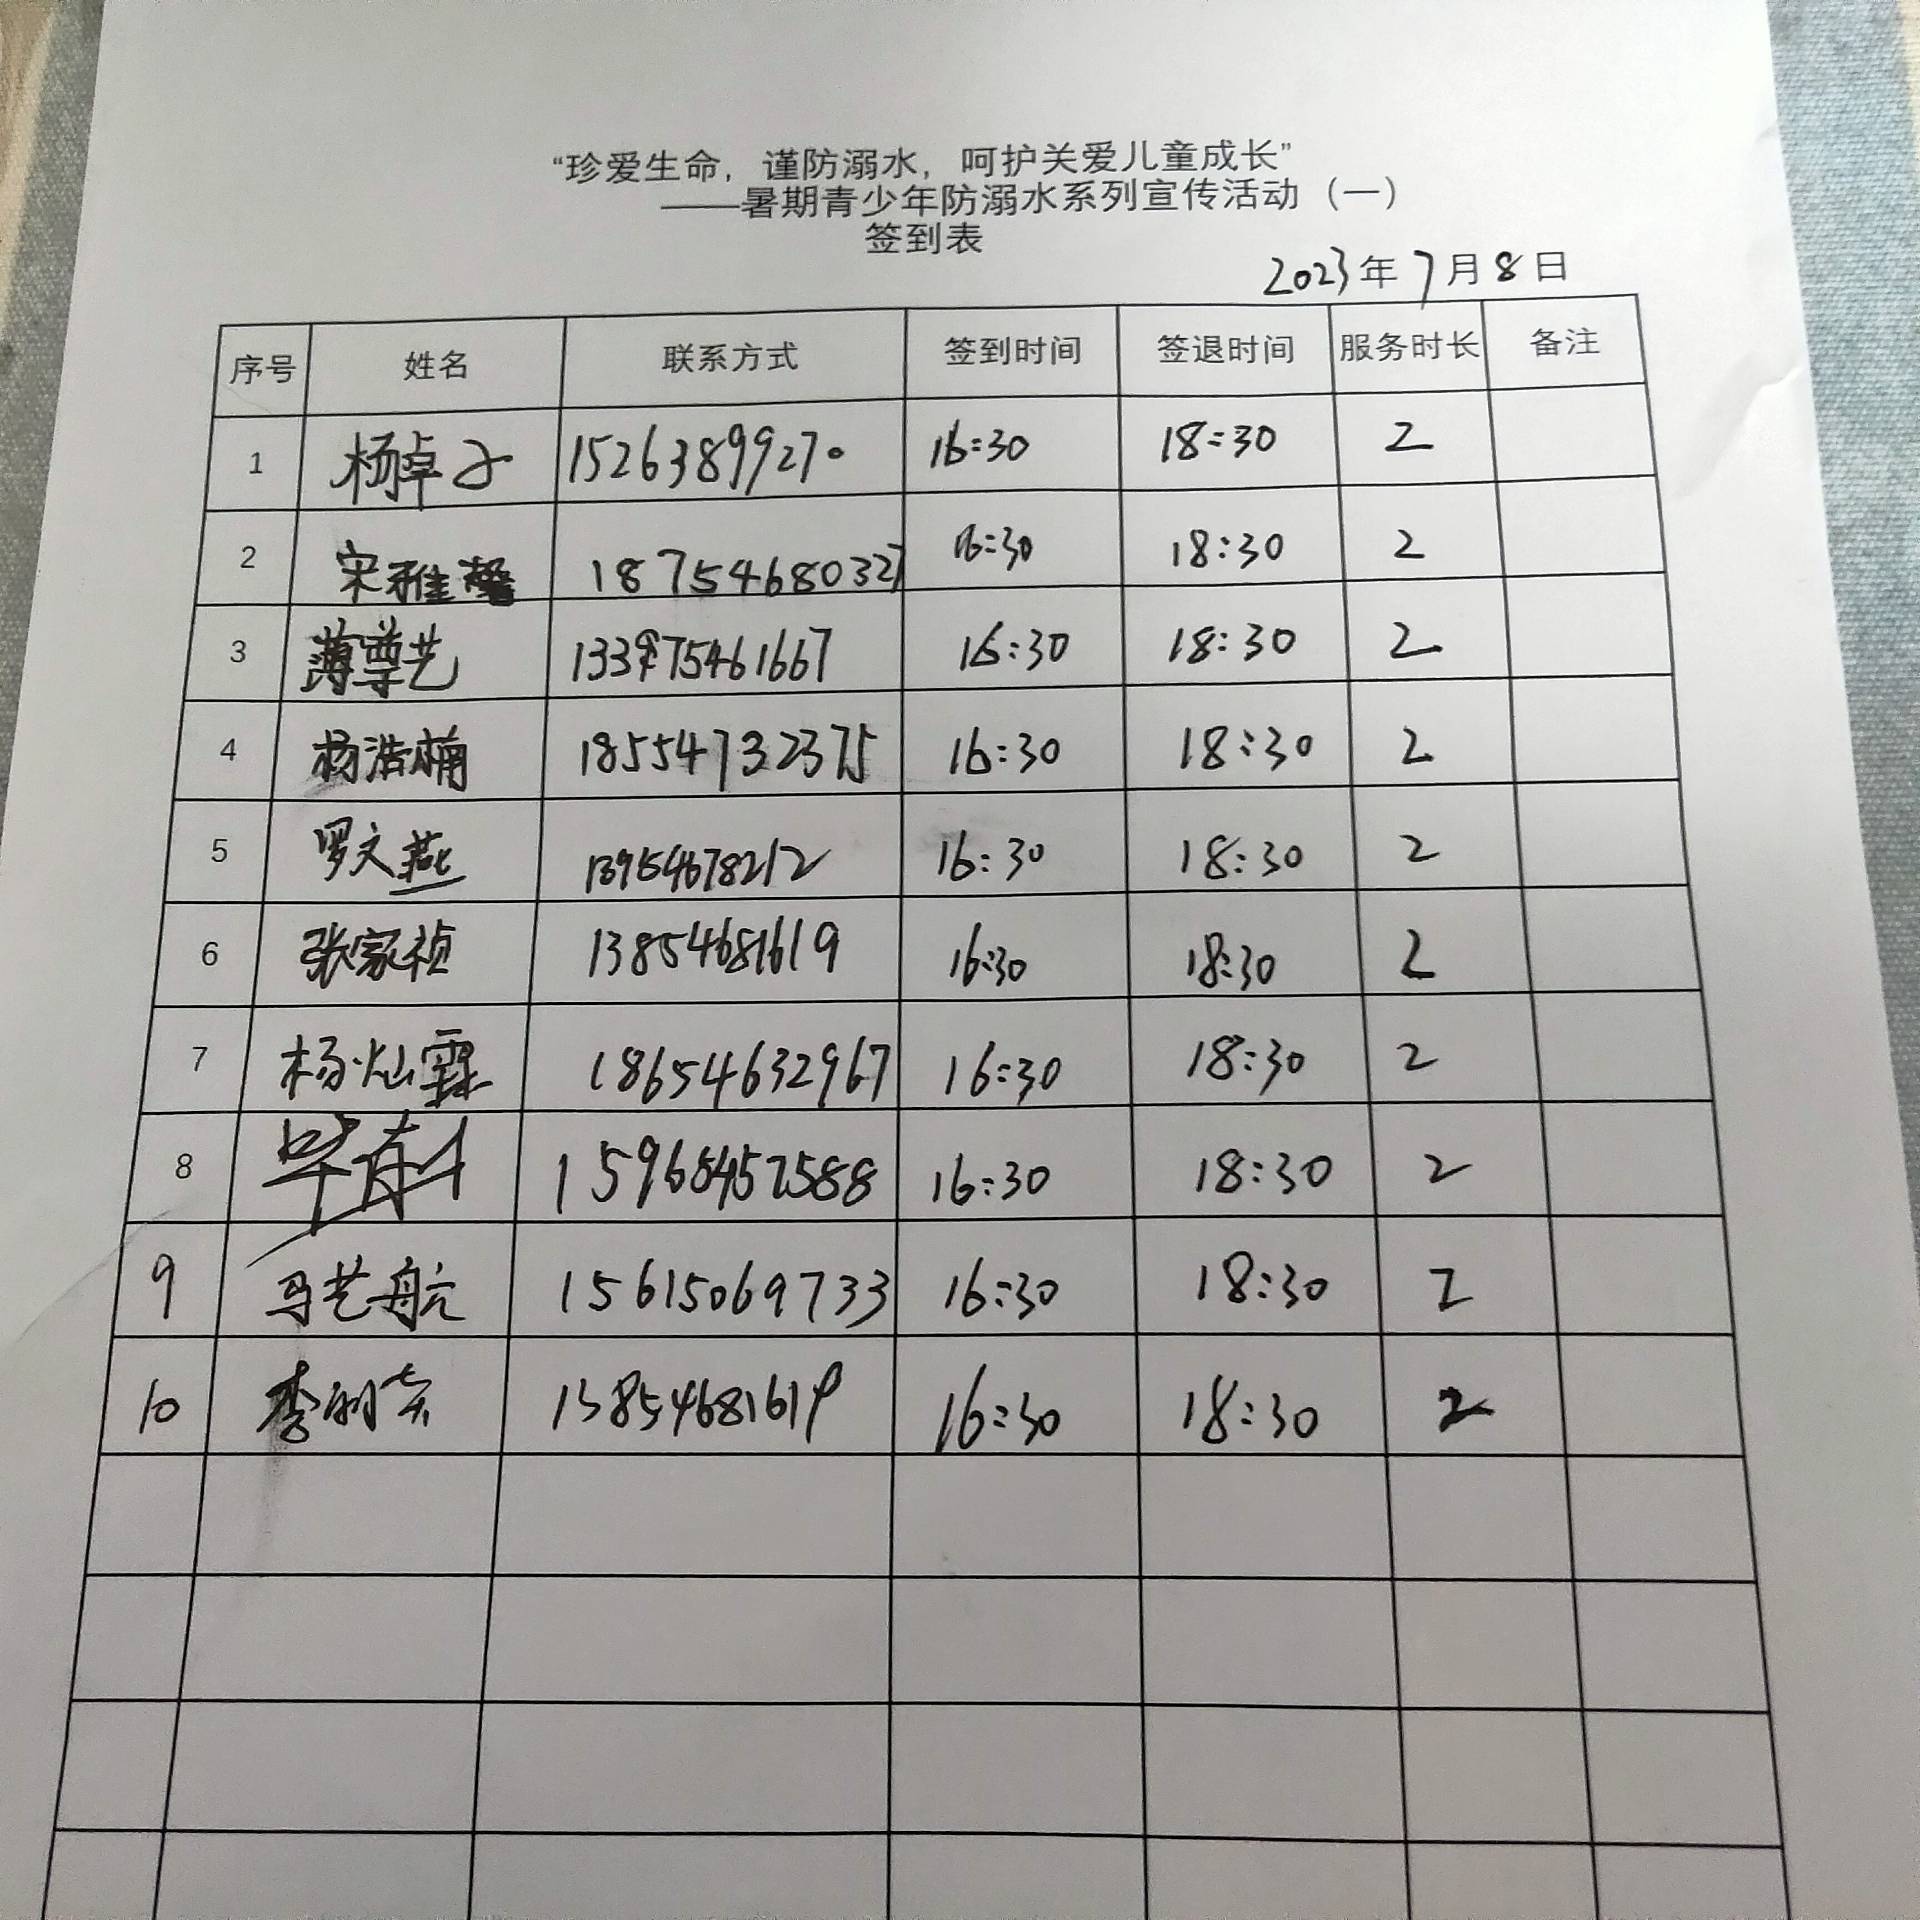 “珍爱生命，谨防溺水，呵护关爱儿童成长”
——暑期青少年防溺水系列宣传活动（一）
签到表
2023年7月8日
序号 姓名 联系方式 签到时间 签退时间 服务时长 备注
1 杨卓子 15263899270 16:30 18:30 2
2 宋雅馨 18754680327 16:30 18:30 2
3 薄尊艺 75461667 16:30 18:30 2
4 杨浩楠 18554732375 16:30 18:30 2
5 罗文燕 13954678212 16:30 18:30 2
6 张家祯 13854681619 16:30 18:30 2
7 杨灿霖 18654632967 16:30 18:30 2
8 16:30 18:30 2
9 马艺航 15615069733 16:30 18:30 2
10 李 13854681619 16:30 18:30 2